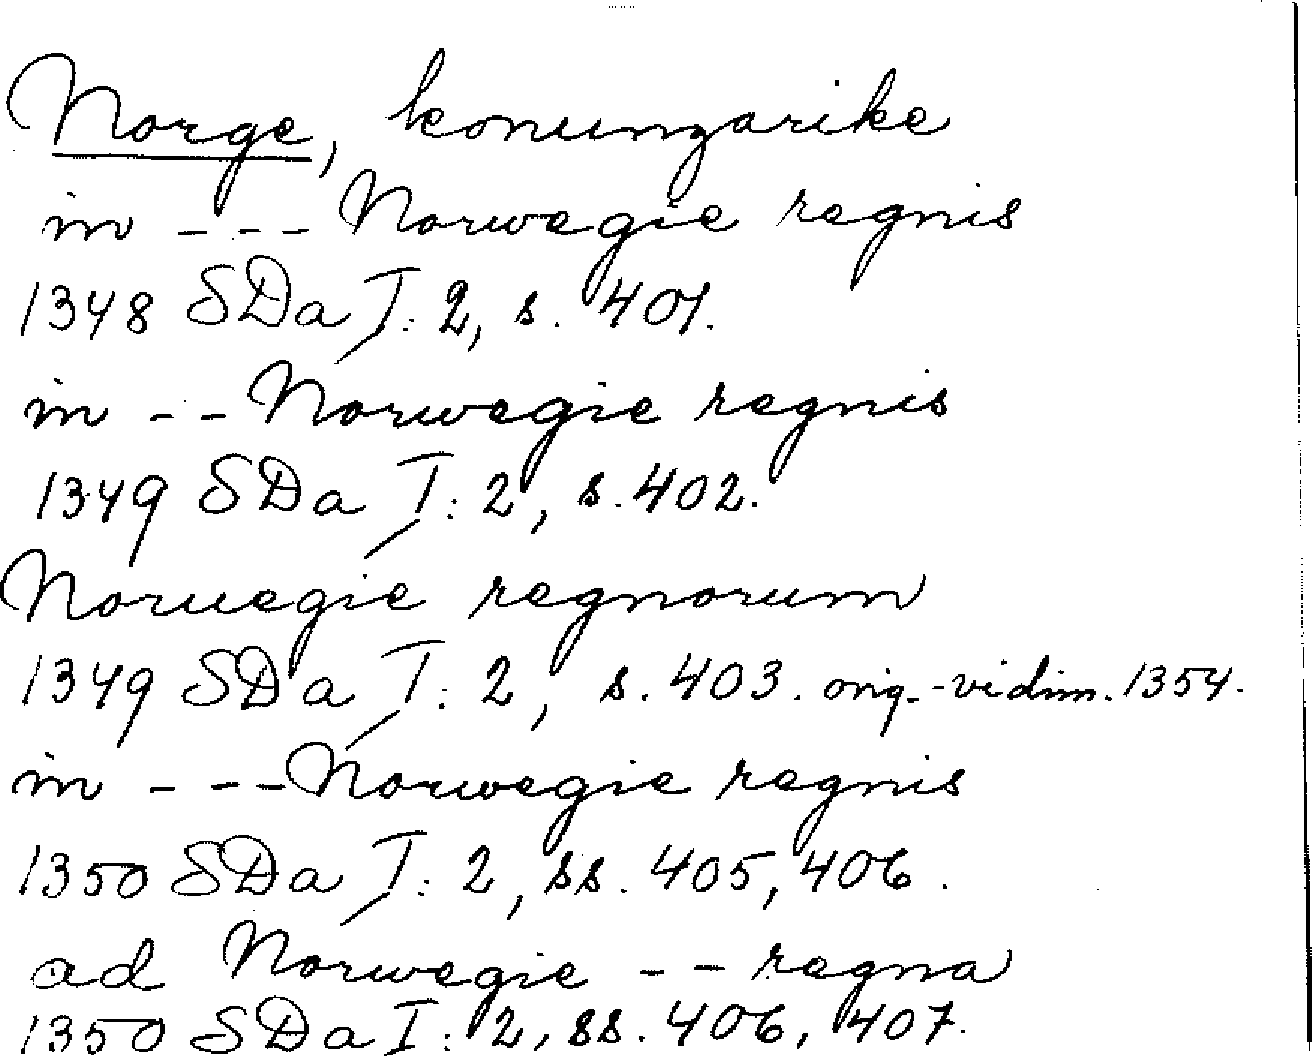 Norge, konungarike
in --- Norwegie regnis
1348 SDa I: 2, s. 401.
in -- Norwegie regnis
1349 SDa I: 2, s. 402.
Noruegie regnorum
1349 SDa I: 2, s. 403. orig.-vidim. 1354.
in --- Norwegie regnis
1350 SDa I: 2, ss. 405, 406.
ad Norwegie -- regna
1350 SDa I: 2, ss. 406, 407.